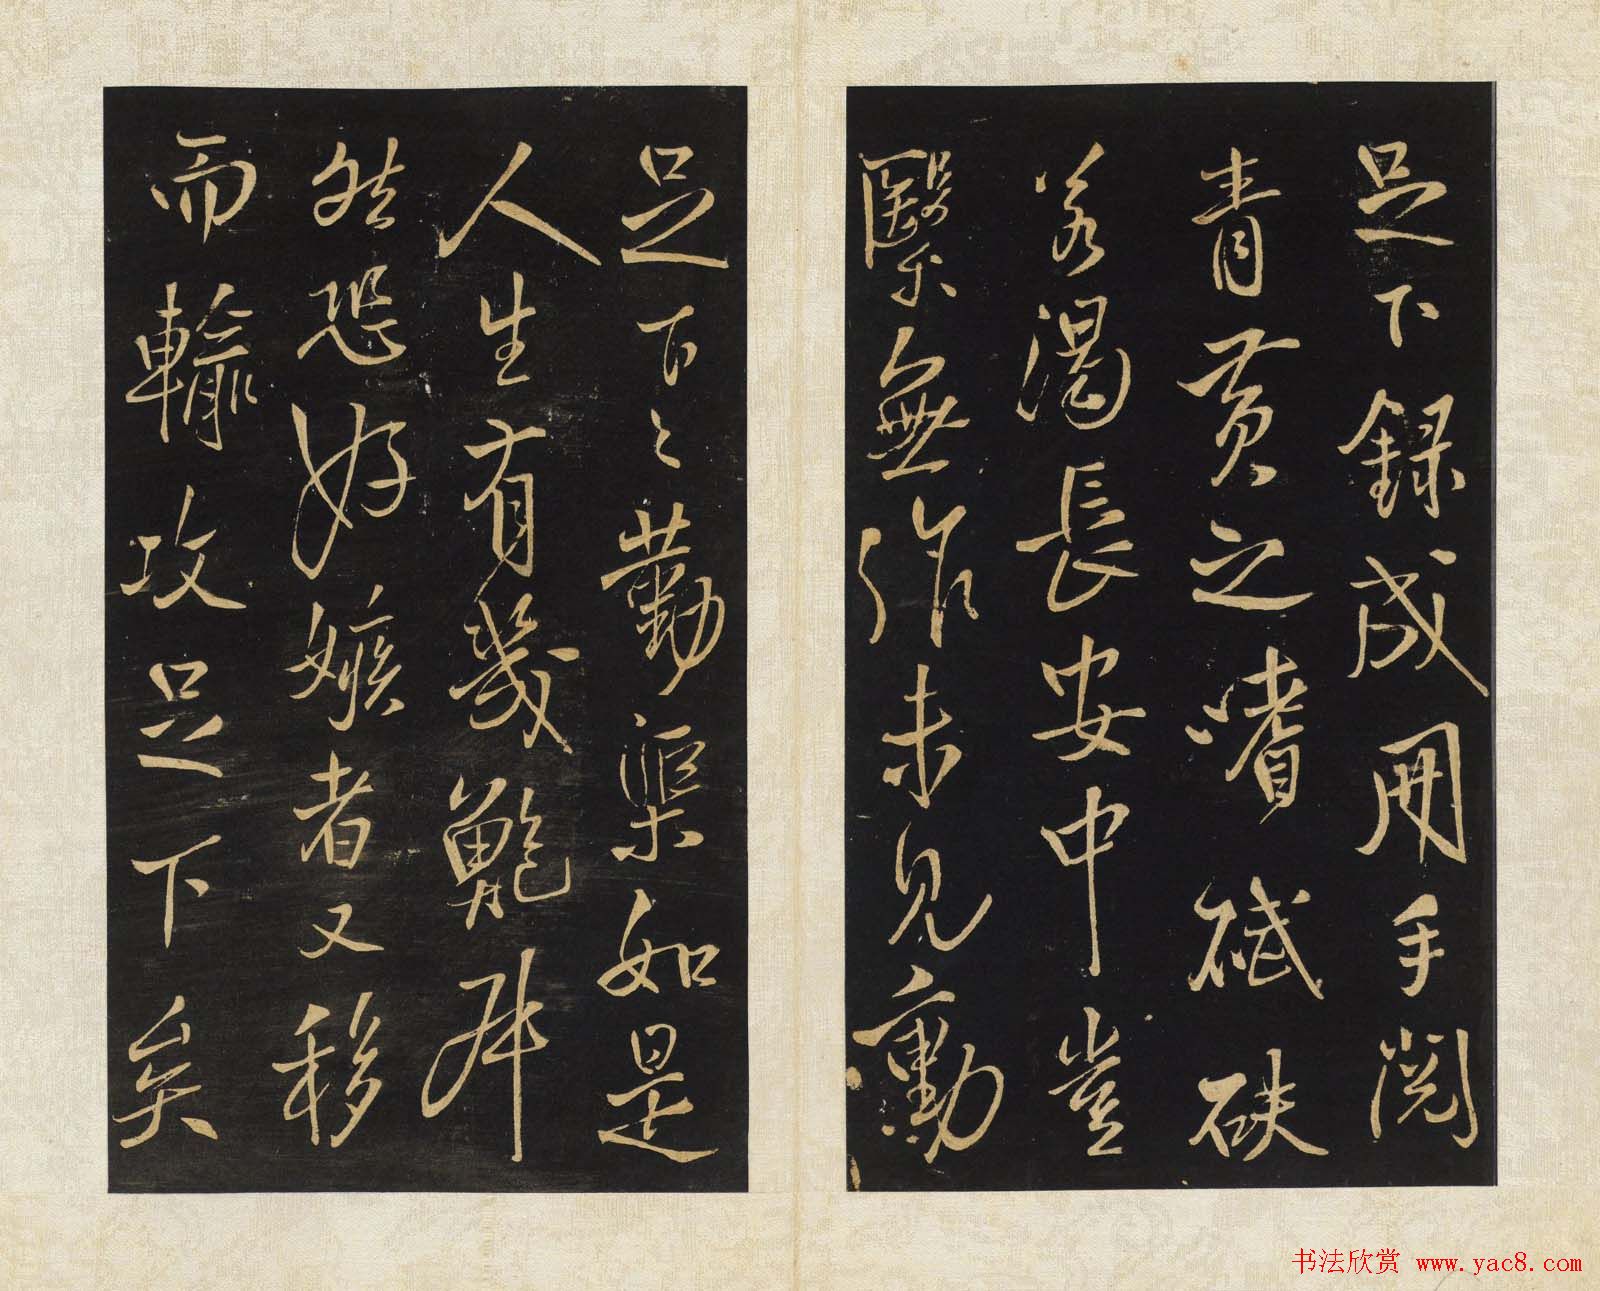 足下錄成冊手閱
青黃之嗜碔砆
若渴長安中豈
繄無作未見動
足下之勤渠如是
人生有幾鮑叔
然恐好嫉者又移
而輸攻足下矣
书法欣赏 www.yac8.com